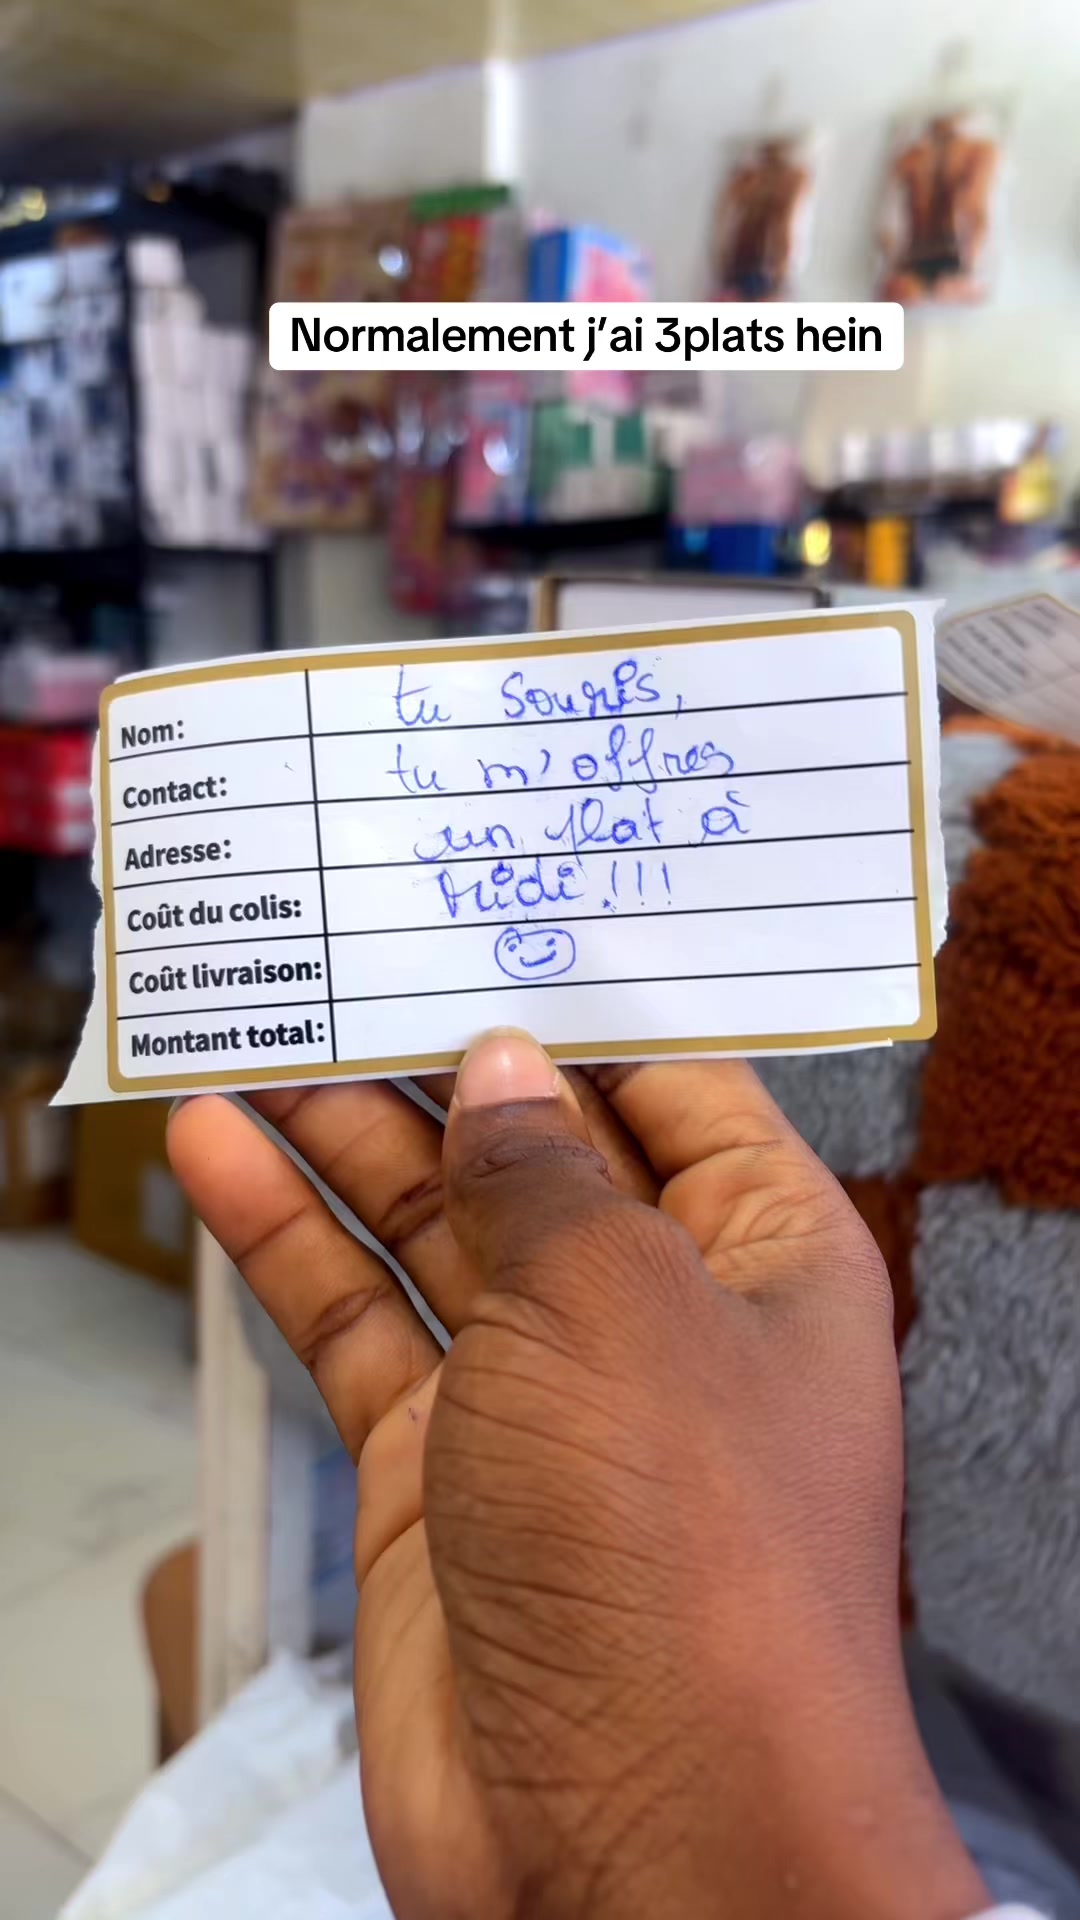 Normalement j'ai 3plats hein
Nom: tu souris,
Contact: tu m'offres
Adresse: un plat à
Coût du colis: Midi!!!
Coût livraison:
Montant total: